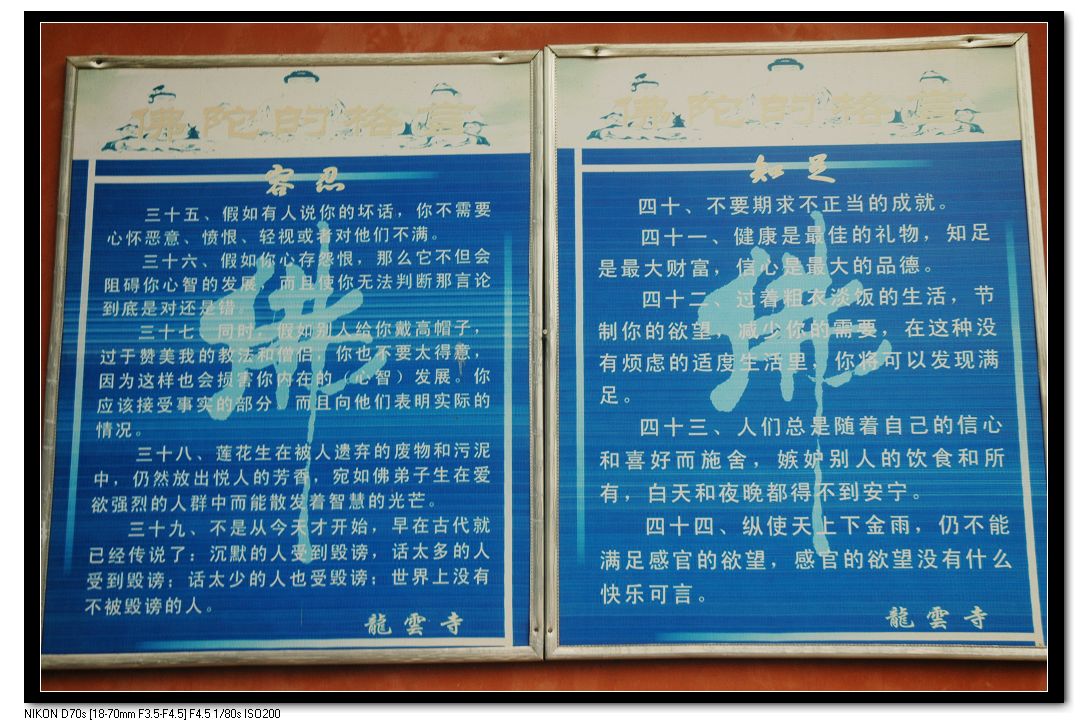 佛陀的格言
容忍
三十五、假如有人说你的坏话，你不需要
心怀恶意、愤恨、轻视或者对他们不满。
三十六、假如你心存怨恨，那么它不但会
阻碍你心智的发展，而且使你无法判断那言论
到底是对还是错。
三十七、同时，假如别人给你戴高帽子，
过于赞美我的教法和僧侣，你也不要太得意，
因为这样也会损害你内在的（心智）发展。你
应该接受事实的部分，而且向他们表明实际的
情况。
三十八、莲花生在被人遗弃的废物和污泥
中，仍然放出悦人的芳香，宛如佛弟子生在爱
欲强烈的人群中而能散发着智慧的光芒。
三十九、不是从今天才开始，早在古代就
已经传说了：沉默的人受到毁谤，话太多的人
受到毁谤；话太少的人也受毁谤；世界上没有
不被毁谤的人。
龍雲寺
佛
佛陀的格言
知足
四十、不要期求不正当的成就。
四十一、健康是最佳的礼物，知足
是最大财富，信心是最大的品德。
四十二、过着粗衣淡饭的生活，节
制你的欲望，减少你的需要，在这种没
有烦虑的适度生活里，你将可以发现满
足。
四十三、人们总是随着自己的信心
和喜好而施舍，嫉妒别人的饮食和所
有，白天和夜晚都得不到安宁。
四十四、纵使天上下金雨，仍不能
满足感官的欲望，感官的欲望没有什么
快乐可言。
龍雲寺
佛
NIKON D70s [18-70mm F3.5-F4.5] F4.5 1/80s ISO200